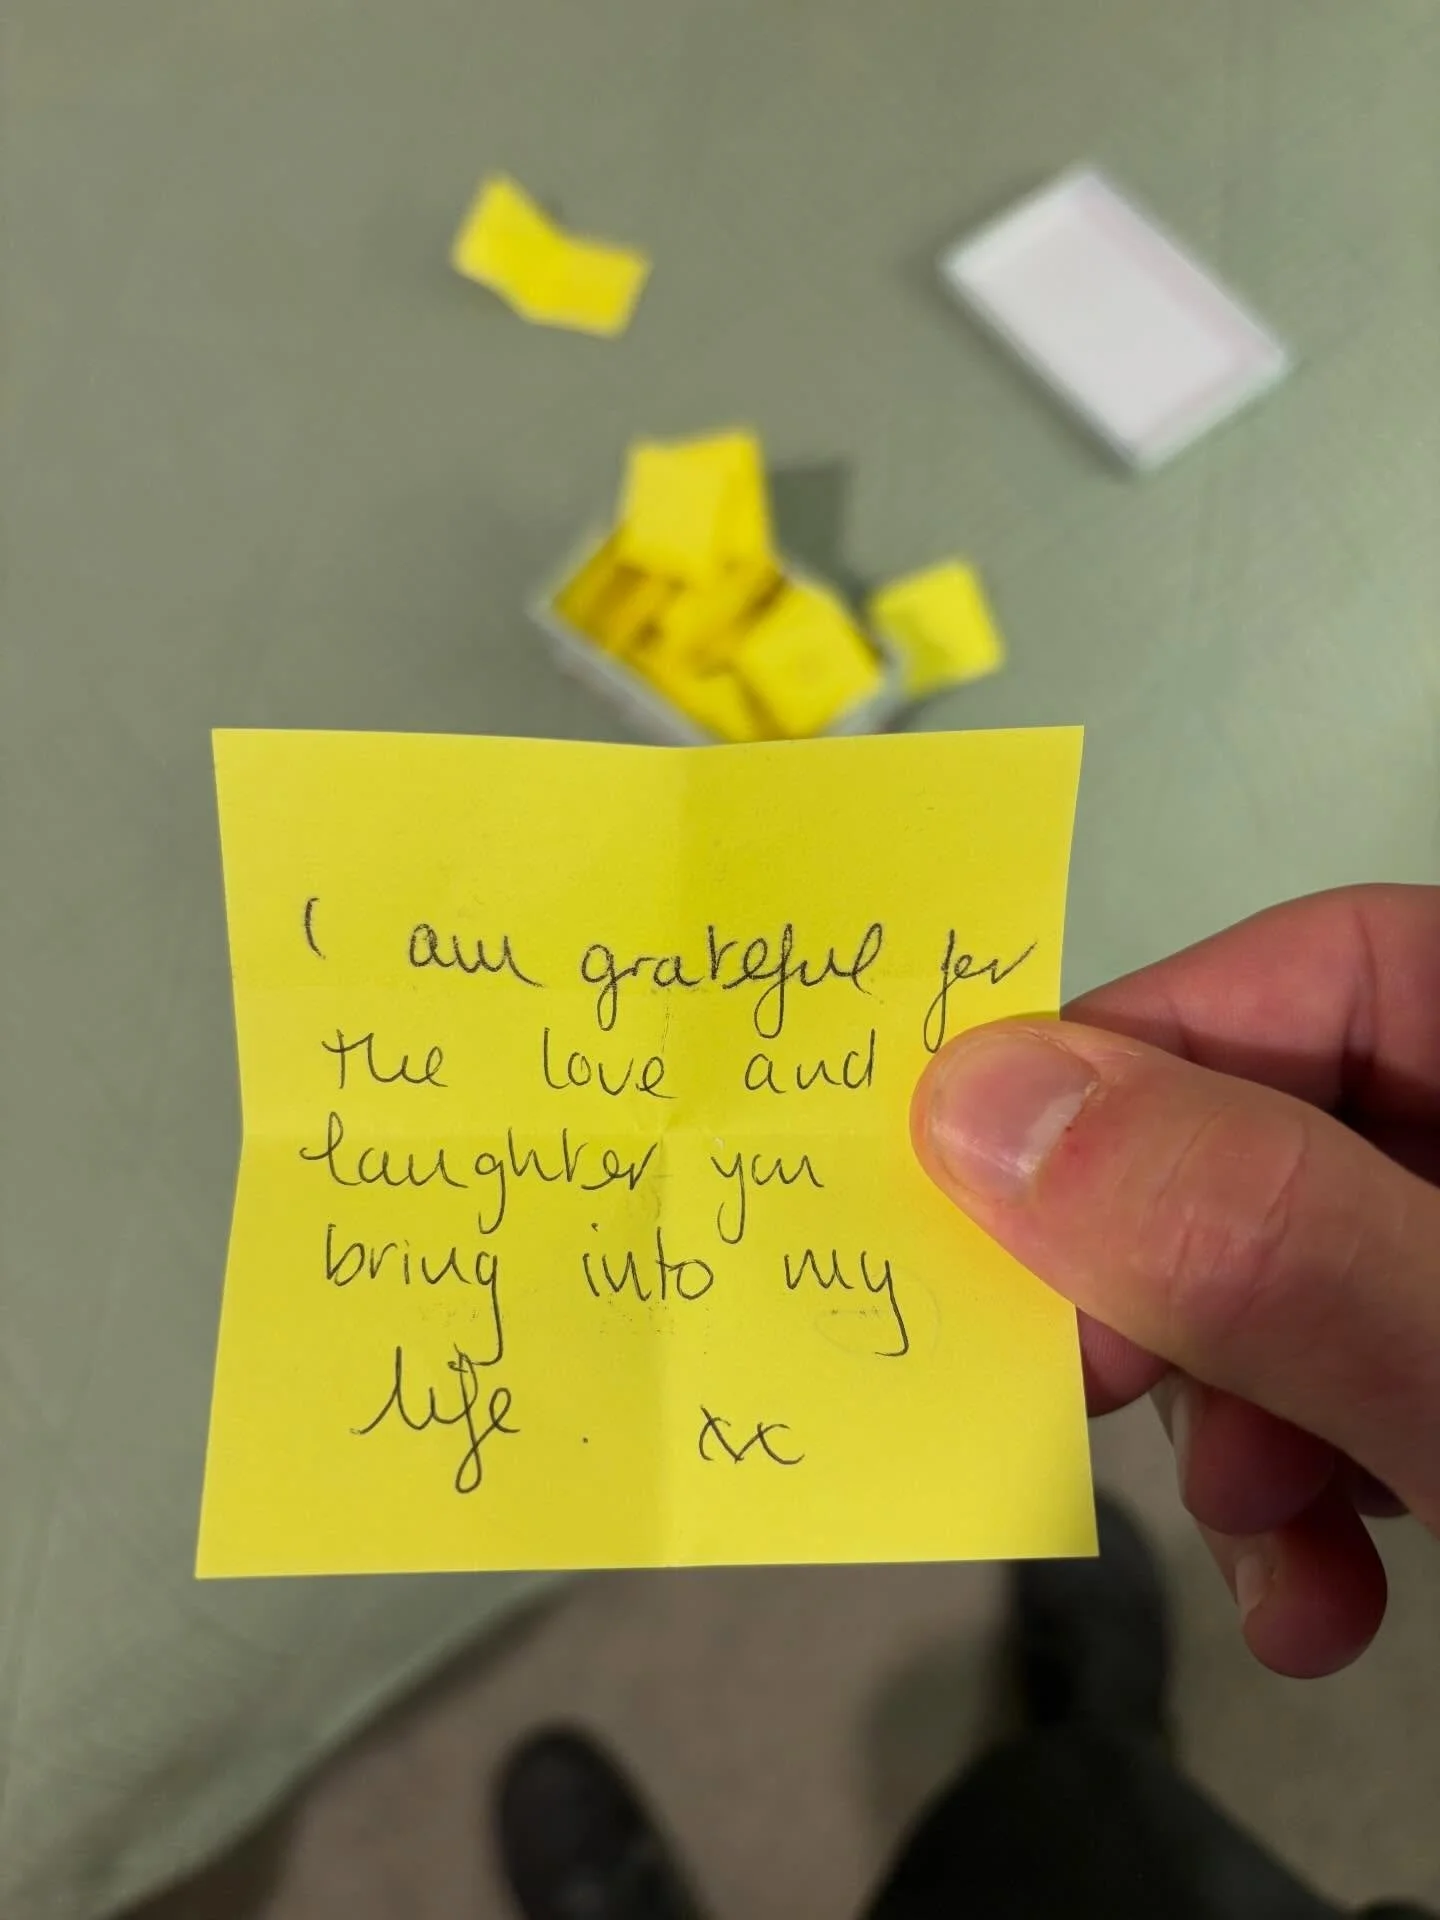 I am grateful for
the love and
laughter you
bring into my
life. xx